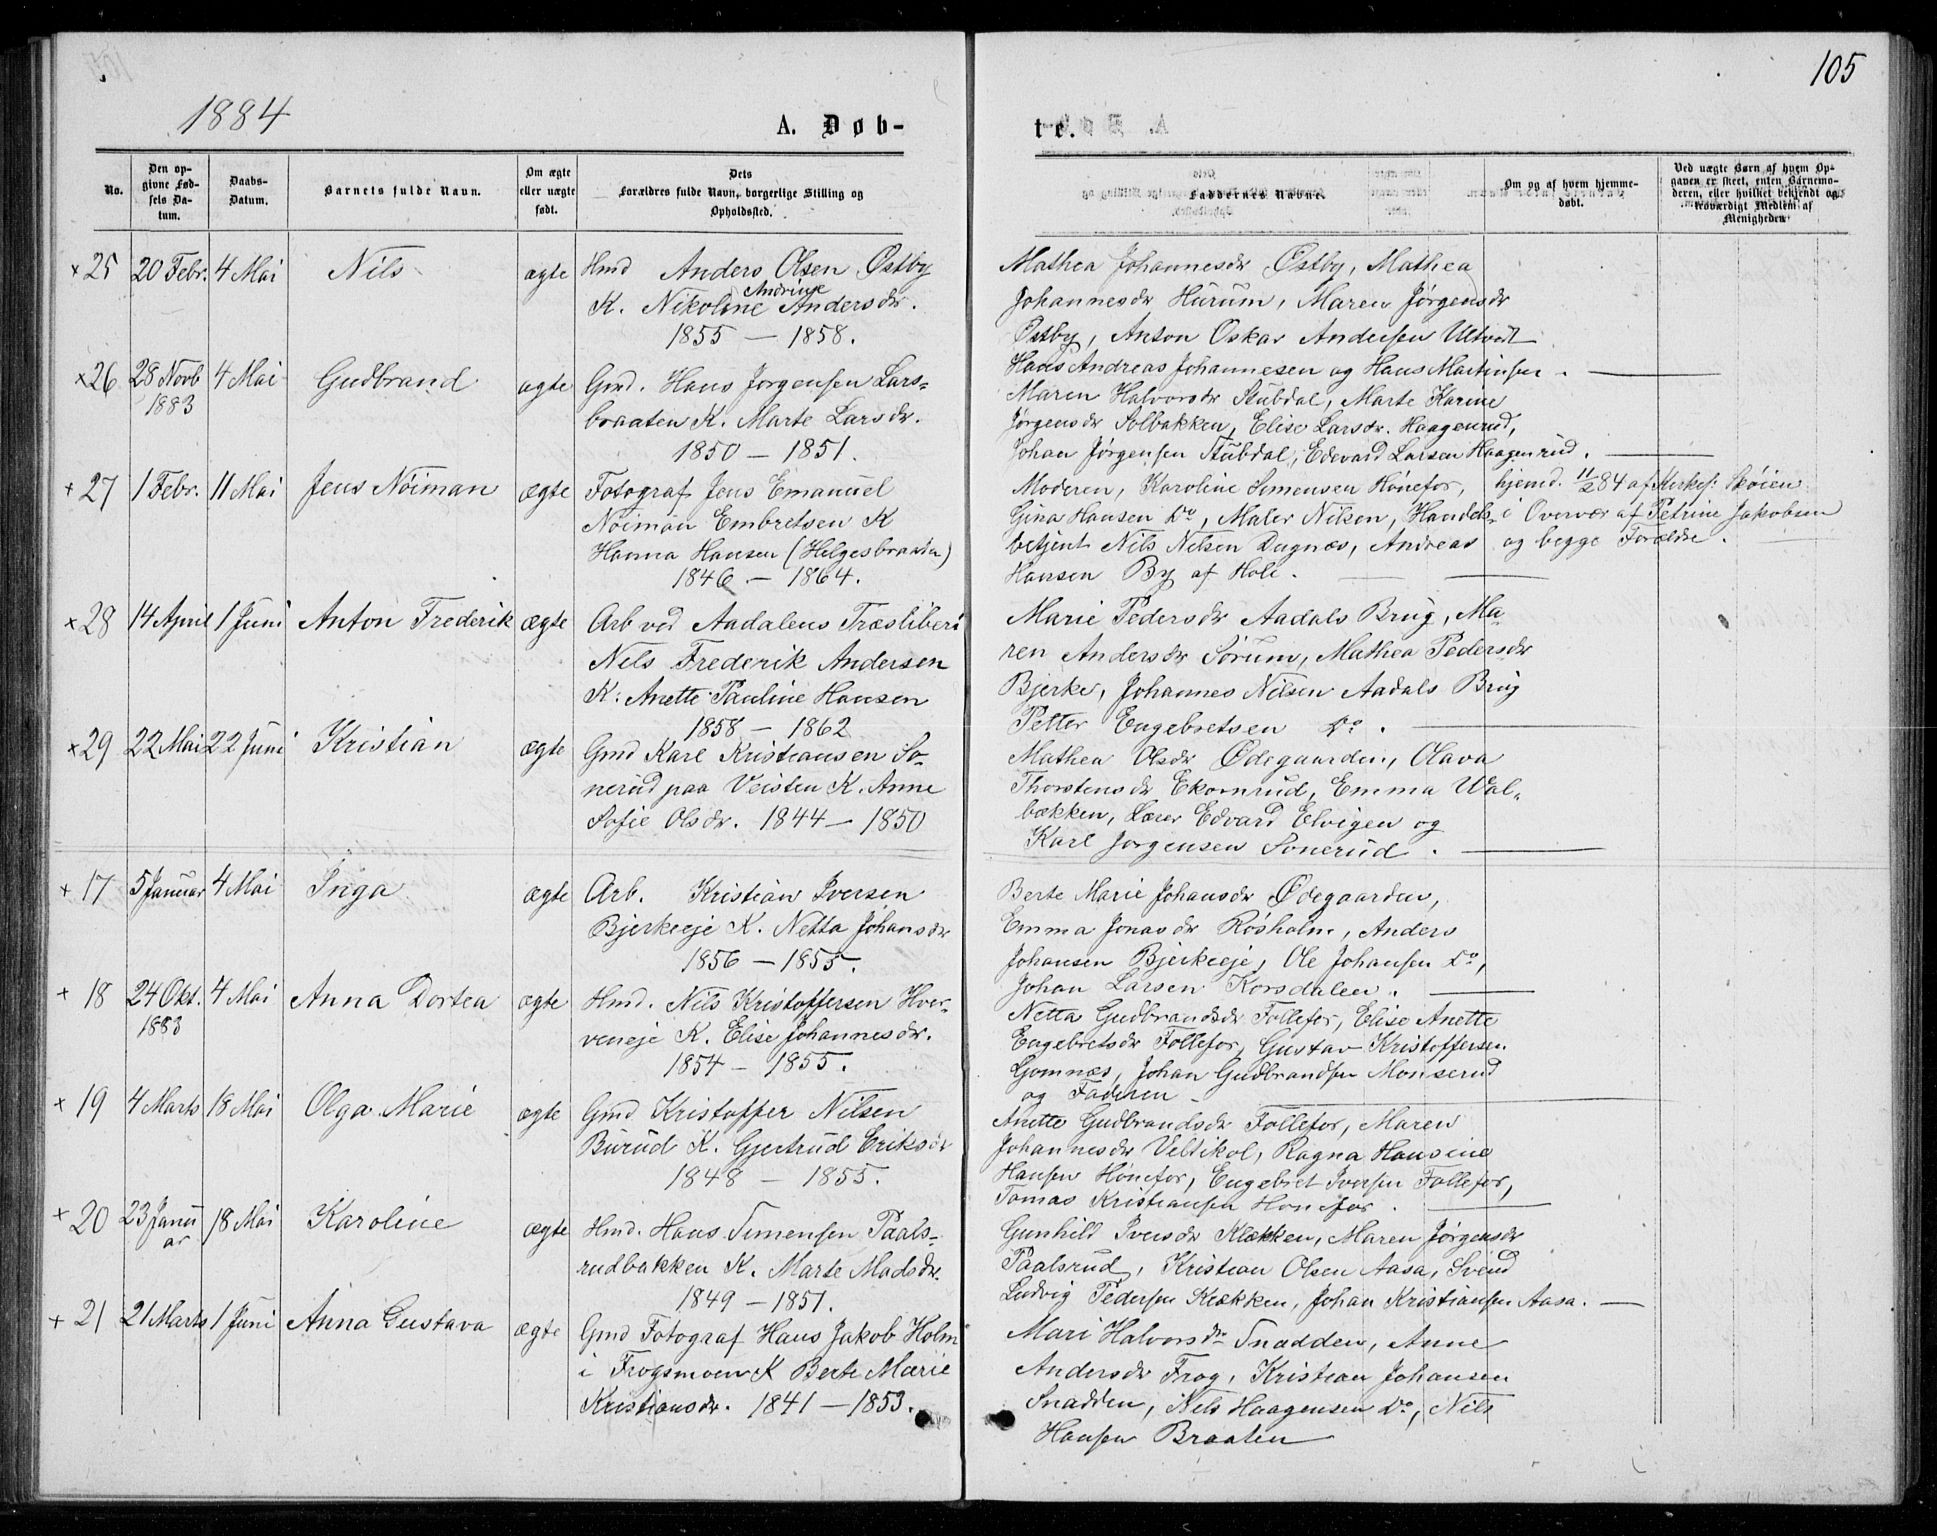 105
1884
A. Døb-
te.
No.
Den opgivne Fødsels Datum.
Daabs-Datum.
Barnets fulde Navn.
Om ægte eller uægte født.
Dets Forældres fulde Navn, borgerlige Stilling og Opholdssted.
Faddernes Navne.
Om og af hvem hjemmedøbt.
Ved uægte Børn af hvem Opgaven er skeet, enten Barnemoderen, eller hvilket bekjendt og troværdigt Medlem af Menigheden
× 25 20 Febr. 4 Mai Nils ægte Hmd Anders Olsen Østby
Andrine
K. Nikoline Andersdr.
1855 — 1858.
Mathea Johannesdr Østby, Mathea
Johannesdr Hurum, Maren Jørgensdr
Østby, Anton Oskar Andersen Ultvedt
Hans Andreas Johannesen og Hans Martinsen.
× 26 28 Novb 1883 4 Mai Gudbrand ægte Gmd. Hans Jørgensen Lars-
braaten K. Marte Larsdr.
1850 — 1851.
Maren Halvorsdr Stubdal, Marte Karine
Jørgensdr Solbakken, Elise Larsdr. Haagenrud,
Johan Jørgensen Stubdal, Edevard Larsen Haagenrud.
× 27 1 Febr. 11 Mai Jens Nöiman ægte Fotograf Jens Emanuel
Nöiman Embretsen K
Hanna Hansen (Helgesbraaten)
1846 — 1864.
Moderen, Karoline Simensen Hönefos,
Gina Hansen Do, Maler Nilsen, Handels-
betjent Nils Nilsen Dagnæs, Andreas
Hansen By af Hole.
hjemd. 11/2 84 af Kirkes: Skøien
i Overvær af Petrine Jakobsen
og begge Forældre.
× 28 14 April 1 Juni Anton Frederik ægte Arb ved Aadalens Træsliberi
Nils Frederik Andersen
K. Anette Pauline Hansen
1858 — 1862
Marie Pedersdr Aadals Brug, Ma-
ren Andersdr Sørum, Mathea Pedersdr
Bjerke, Johannes Nilsen Aadals Brug
Petter Engebretsen Do.
× 29 22 Mai 22 Juni Kristian ægte Gmd Karl Kristiansen So-
nerud paa Veisten K. Anne
Sofie Olsdr. 1844 — 1850
Mathea Olsdr Ødegaarden, Olava
Thorstensdr Ekornrud, Emma Wal-
bækken, Lærer Edvard Elvigen og
Karl Jørgensen Sonerud.
× 17 5 Januar 4 Mai Inga ægte Arb. Kristian Iversen
Bjerkeeje K. Netta Johansdr
1856 — 1855.
Berte Marie Johansdr Ødegaarden,
Emma Jonasdr Røsholm, Anders
Johansen Bjerkeeje, Ole Johansen Do,
Johan Larsen Korsdalen.
× 18 24 Okt. 1883 4 Mai Anna Dortea ægte Hmd. Nils Kristoffersen Hver-
veneje K. Elise Johannesdr.
1854 — 1855.
Netta Gudbrandsdr Follefos, Elise Anette
Engebretsdr Follefos, Gustav Kristoffersen
Gomnæs, Johan Gudbrandsen Monserud
og Faderen
× 19 4 Marts 18 Mai Olga Marie ægte Gmd Kristoffer Nilsen
Burud K. Gjertrud Eriksdr
1848 — 1855.
Anette Gudbrandsdr Follefos, Maren
Johannesdr Veltikol, Ragna Hansine
Hansen Hönefos, Engebret Iversen Follefos,
Tomas Kristiansen Honefos.
× 20 23 Januar 18 Mai Karoline ægte Hmd. Hans Simensen Paals-
rudbakken K. Marte Madsdr.
1849 — 1851.
Gunhild Iversdr Klækken, Maren Jørgensdr
Paalsrud, Kristian Olsen Aasa, Svend
Ludvig Pedersen Klækken, Johan Kristiansen Aasa.
× 21 21 Marts 1 Juni Anna Gustava ægte Gmd Fotograf Hans Jakob Holm
i Frogsmoen K Berte Marie
Kristiansdr. 1841 — 1853.
Mari Halvorsdr Snadden, Anne
Andersdr Frog, Kristian Johansen
Snadden, Nils Haagensen Do, Nils
Hansen Braaten